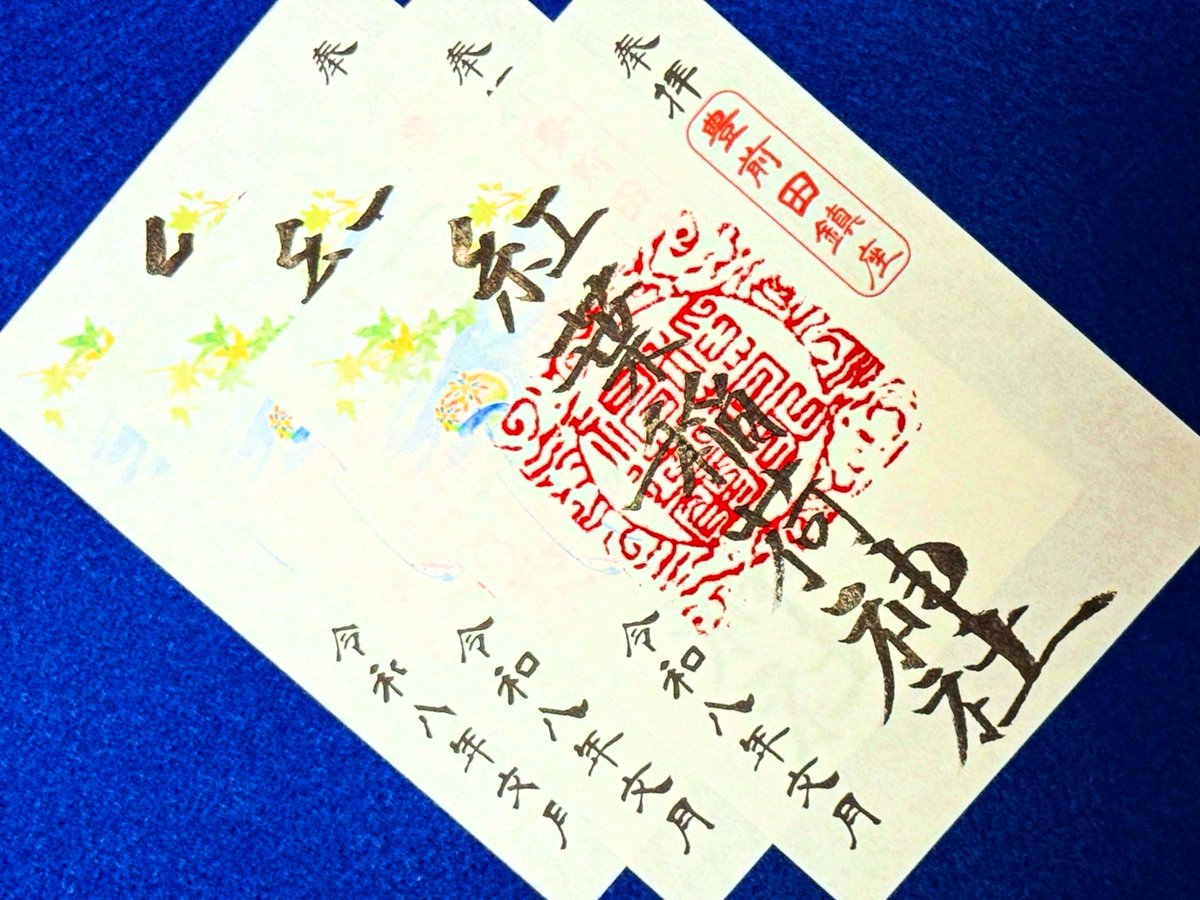 奉拝
豊前田鎮座
紅葉稲荷神社
令和八年文月
奉
令和八年文月
奉
令和八年文月